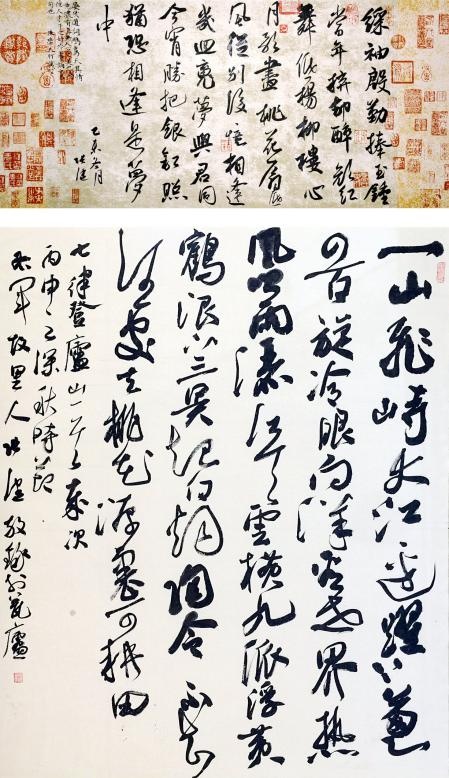 綵袖殷勤捧玉鍾
當年拚却醉顏紅
舞低楊柳樓心
月歌盡桃花扇底
風從別後憶相逢
幾回魂夢與君同
今宵勝把銀釭照
猶恐相逢是夢
中
乙亥冬月
一山飛峙大江邊躍上蔥
四百旋冷眼向洋看世界熱
風吹雨灑江天雲橫九派浮黃
鶴浪下三吳起白煙陶令不知
何處去桃花源裏可耕田
七律登廬山一首歲次
丙申之深秋時節
右軍故里人張敬錄於廬